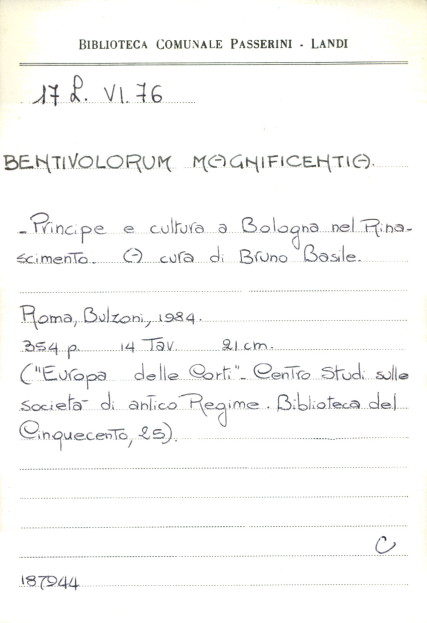 BIBLIOTECA COMUNALE PASSERINI - LANDI
17 L. VI. 76
BENTIVOLORUM MAGNIFICENTIA.
- Principe e cultura a Bologna nel Rina-
scimento. A cura di Bruno Basile.
Roma, Bulzoni, 1984.
354 p. 14 Tav. 21 cm.
("Europa delle Corti" - Centro Studi sulle
società di antico Regime. Biblioteca del
Cinquecento, 25).
C
187944